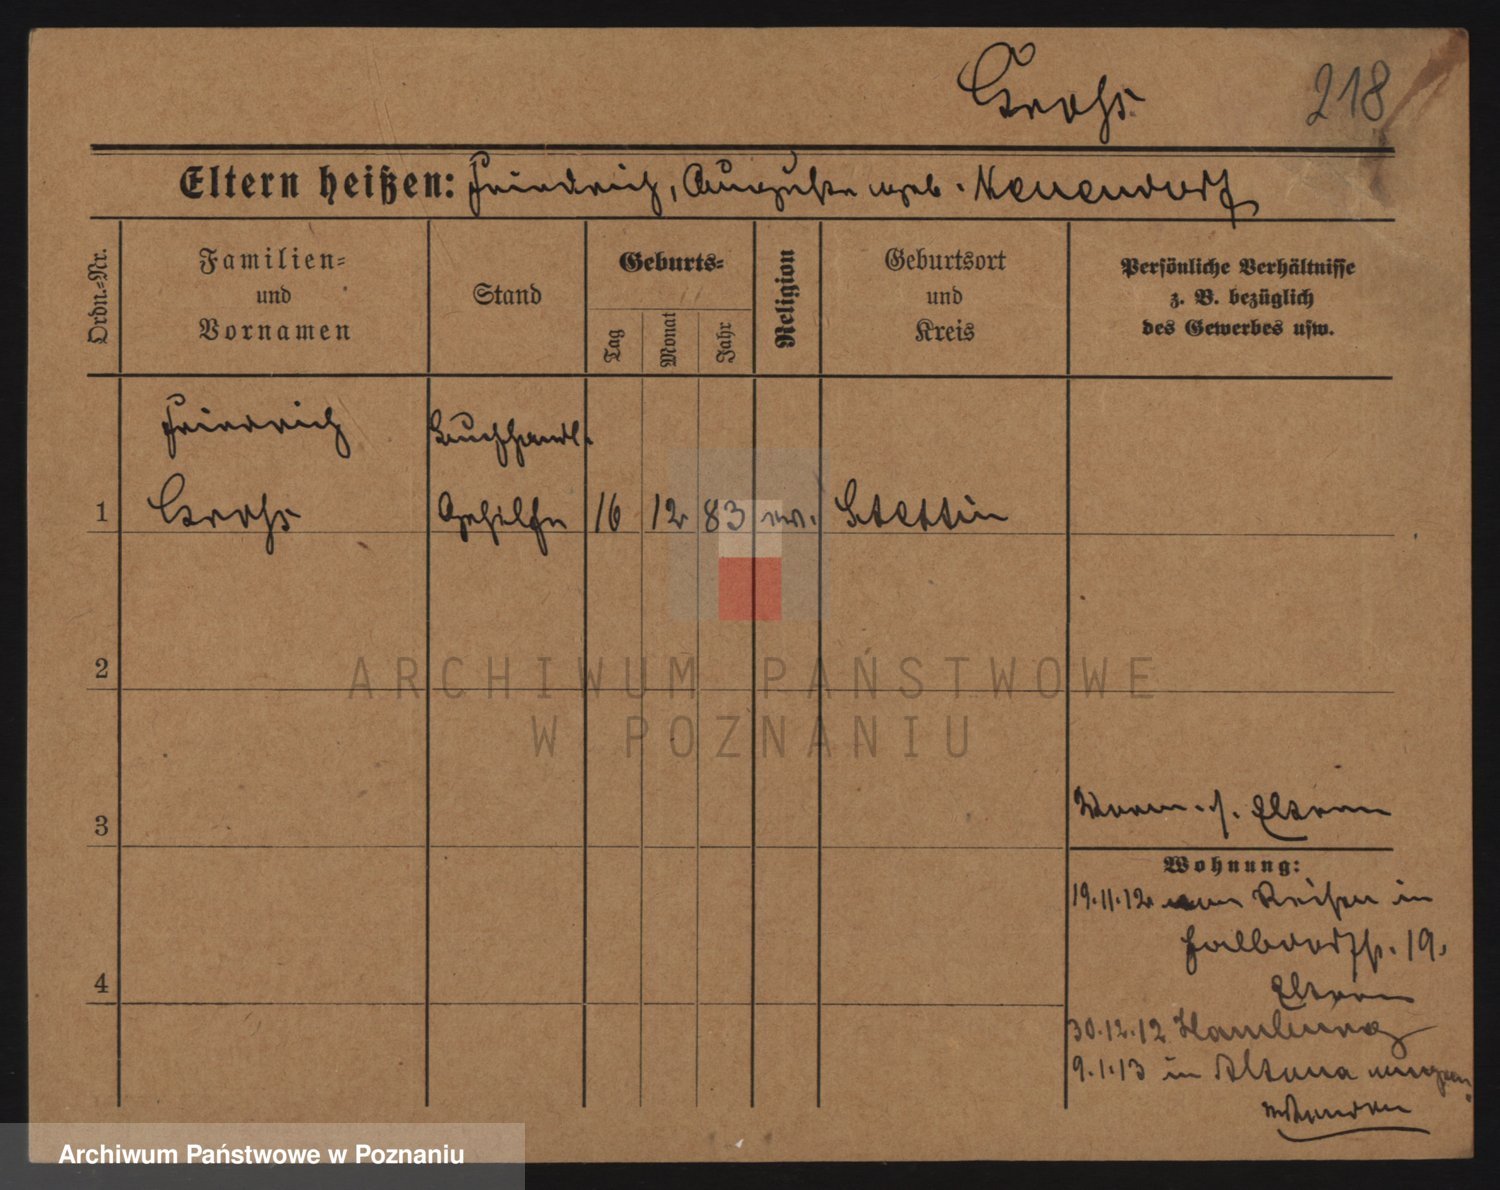 Krohs
218
Eltern heißen: Friedrich, Auguste geb. Neuendorf
Ordn.-Nr.
Familien-
und
Vornamen
Stand
Geburts-
Tag
Monat
Jahr
Religion
Geburtsort
und
Kreis
Persönliche Verhältnisse
z. B. bezüglich
des Gewerbes usw.
Friedrich
Buchhandl.
1 Krohs Gehilfe 16 12 83 ev. Stettin
2
ARCHIWUM PAŃSTWOWE
W POZNANIU
3
Eltern
Wohnung:
19.11.12 von Reisen in
Halbdorfstr. 19.
Eltern
4
30.12.12 Hamburg
9.1.13 in Altona
Archiwum Państwowe w Poznaniu